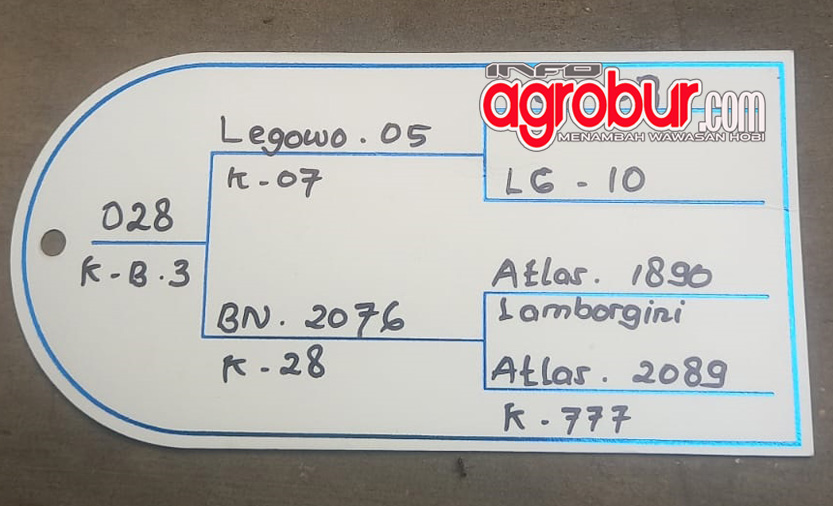 INFO
agrobur.com
MENAMBAH WAWASAN HOBI
Legowo . 05
K - 07
LG - 10
028
K - B . 3
Atlas . 1890
Lamborgini
BN . 2076
K - 28
Atlas . 2089
K - 777